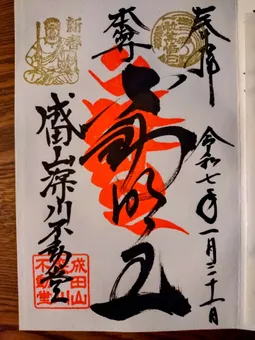 奉拝
令和七年一月三十一日
本尊
不動明王
成田山深川不動堂
成田山
不動堂